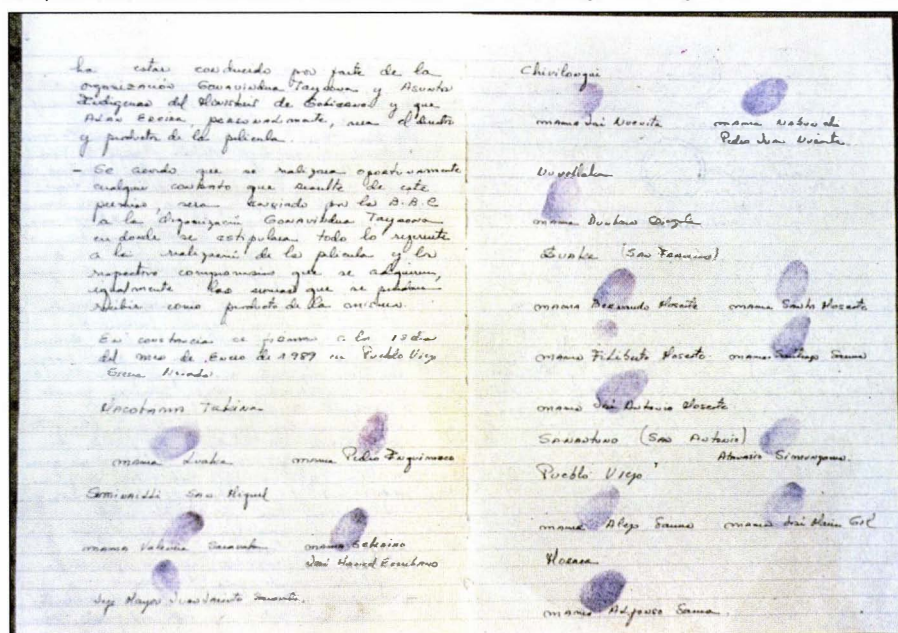 ha estar conducido por parte de la
organización Gonavindua Tayrona y Asuntos
Indigenas del Ministerio de Gobierno y que
Alan Ereira, personalmente, sera el director
y productor de la pelicula.
- Se acordo que se realizara oportunamente
cualquier contrato que resulte de este
permiso, sera enviado por la B.B.C
a la Organización Gonavindua Tayrona
en donde se estipulara todo lo referente
a la realización de la pelicula y los
respectivos compromisos que se adquieren,
igualmente las sumas que se puedan
recibir como producto de la misma.
En constancia se firma a los 18 dias
del mes de Enero de 1989 en Pueblo Viejo
Sierra Nevada.
Macotama
mama mama Pedro
San Miguel
mama Valencia mama
José Manuel
Juan Jacinto
Chivilongui
mama José Nuevita mama
Pedro Juan
mama Dumbara
(San Francisco)
mama Bernardo Moscote mama Santo Moscote
mama Filiberto Moscote mama Sauna
mama José Antonio Moscote
(San Antonio)
Atanasio
Pueblo Viejo
mama Alejo Sauna mama José Maria Gil
mama Alfonso Sauna